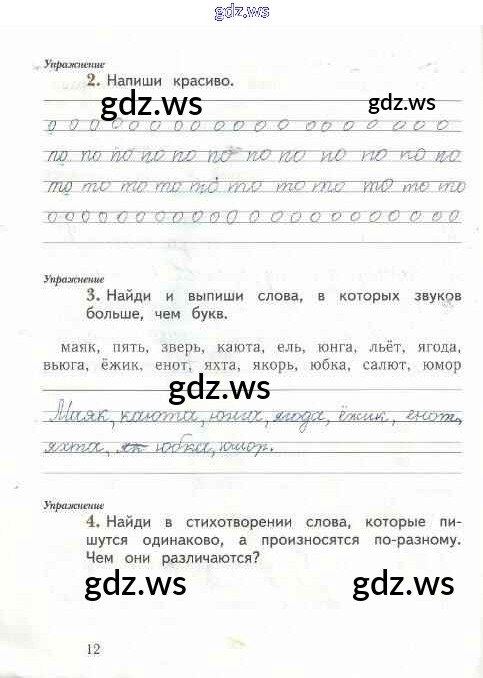 gdz.ws
Упражнение
2. Напиши красиво.
gdz.ws gdz.ws
о о о о о о о о о о о о о о о о о о о о
по по по по по по по по по по по по
то то то то то то то то то то то
о о о о о о о о о о о о о о о о о о о о о о о
Упражнение
3. Найди и выпиши слова, в которых звуков
больше, чем букв.
маяк, пять, зверь, каюта, ель, юнга, льёт, ягода,
вьюга, ёжик, енот, яхта, якорь, юбка, салют, юмор
gdz.ws
Маяк, каюта, юнга, ягода, ёжик, енот,
яхта, як юбка, юмор.
Упражнение
4. Найди в стихотворении слова, которые пи-
шутся одинаково, а произносятся по-разному.
Чем они различаются?
gdz.ws gdz.ws
12
gdz.ws